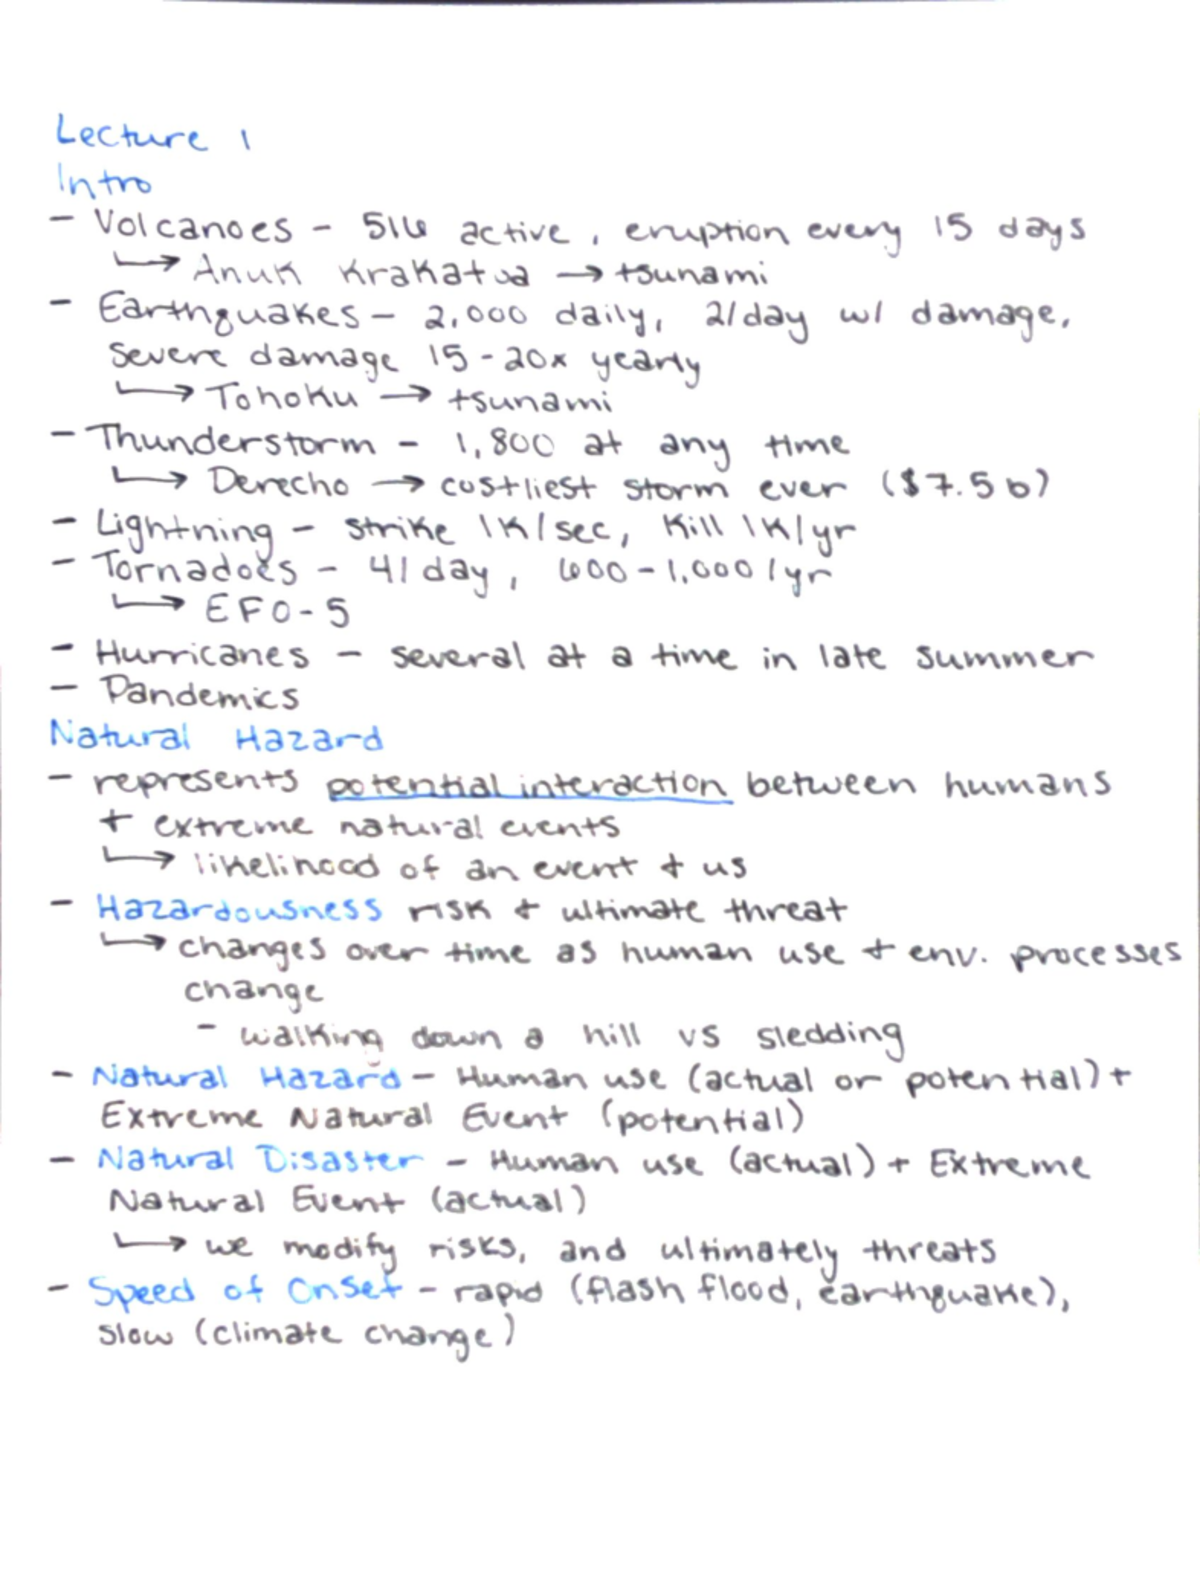 Lecture 1
Intro
- Volcanoes - 516 active, eruption every 15 days
↳ Anuk Krakatoa → tsunami
- Earthquakes - 2,000 daily, 2/day w/ damage,
severe damage 15-20x yearly
↳ Tohoku → tsunami
- Thunderstorm - 1,800 at any time
↳ Derecho → costliest storm ever ($7.5b)
- Lightning - strike 1K/sec, Kill 1K/yr
- Tornadoes - 4/day, 600-1,000/yr
↳ EF0-5
- Hurricanes - several at a time in late summer
- Pandemics
Natural Hazard
- represents potential interaction between humans
+ extreme natural events
↳ likelihood of an event + us
- Hazardousness risk + ultimate threat
↳ changes over time as human use + env. processes
change
- walking down a hill vs sledding
- Natural Hazard - Human use (actual or potential) +
Extreme Natural Event (potential)
- Natural Disaster - Human use (actual) + Extreme
Natural Event (actual)
↳ we modify risks, and ultimately threats
- Speed of Onset - rapid (flash flood, earthquake),
slow (climate change)